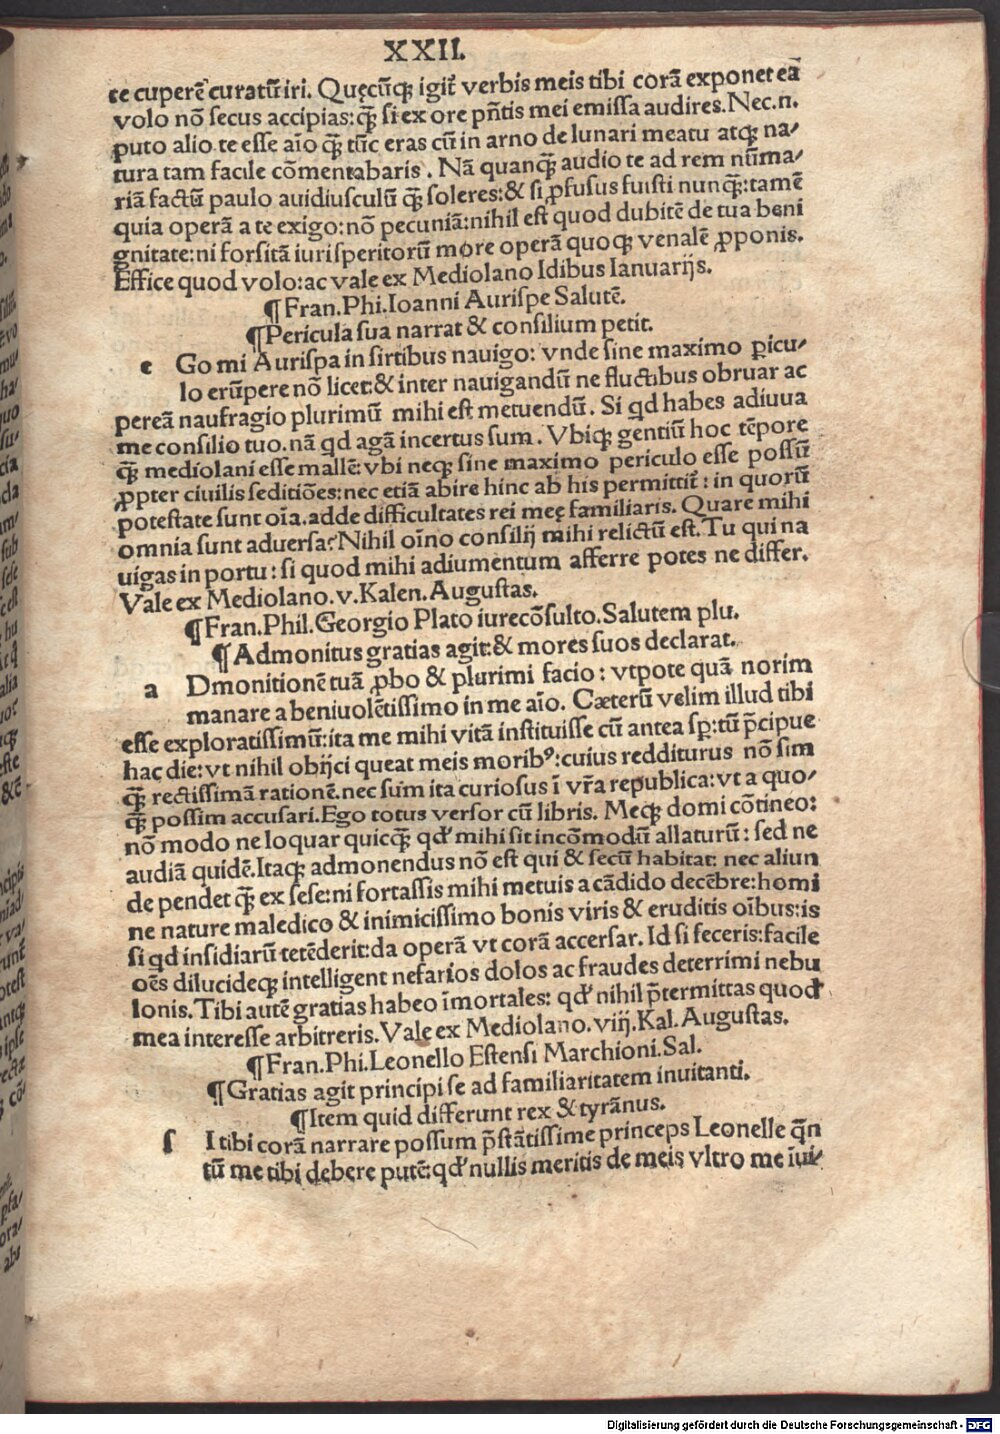 XXII.
te cuperē curatū iri. Quęcūq; igit̄ verbis meis tibi corā exponet eā
volo nō secus accipias: q̄ꝫ si ex ore pn̄tis mei emissa audires. Nec .n.
puto alio te esse aīo q̄ꝫ tūc eras cū in arno de lunari meatu atq; na/
tura tam facile cōmentabaris. Nā quanq̄ꝫ audio te ad rem nūma/
riā factū paulo auidiusculū q̄ꝫ soleres: & si ꝓfusus fuisti nunq̄ꝫ: tamē
quia operā a te exigo: nō pecuniā: nihil est quod dubitē de tua beni
gnitate: ni forsitā iurisperitorū more operā quoq; venalē ꝓponis.
Effice quod volo: ac vale ex Mediolano Idibus Ianuarijs.
¶Fran. Phi. Ioanni Aurispe Salutē.
¶Pericula sua narrat & consilium petit.
e Go mi Aurispa in sirtibus nauigo: vnde sine maximo ꝑicu/
lo erūpere nō licet: & inter nauigandū ne fluctibus obruar ac
pereā naufragio plurimū mihi est metuendū. Si qd habes adiuua
me consilio tuo. nā qd agā incertus sum. Vbiq; gentiū hoc tēpore
q̄ꝫ mediolani esse mallē: vbi neq; sine maximo periculo esse possū
ꝓpter ciuilis seditiōes: nec etiā abire hinc ab his permittit̄: in quorū
potestate sunt oīa. adde difficultates rei meę familiaris. Quare mihi
omnia sunt aduersa. Nihil oīno consilij mihi relictū est. Tu qui na
uigas in portu: si quod mihi adiumentum afferre potes ne differ.
Vale ex Mediolano. v. Kalen. Augustas.
¶Fran. Phil. Georgio Plato iurecōsulto. Salutem plu.
¶Admonitus gratias agit: & mores suos declarat.
a Dmonitionē tuā ꝓbo & plurimi facio: vtpote quā norim
manare a beniuolētissimo in me aīo. Cæterū velim illud tibi
esse exploratissimū: ita me mihi vitā instituisse cū antea sꝑ: tū p̄cipue
hac die: vt nihil obijci queat meis moribꝰ: cuius redditurus nō sim
q̄ꝫ rectissimā rationē. nec sum ita curiosus ī vr̄a republica: vt a quo/
q̄ꝫ possim accusari. Ego totus versor cū libris. Meq; domi cōtineo:
nō modo ne loquar quicq̄ꝫ qd' mihi sit incōmodū allaturū: sed ne
audiā quidē. Itaq; admonendus nō est qui & secū habitat: nec aliun
de pendet q̄ꝫ ex sese: ni fortassis mihi metuis a cādido decēbre: homi
ne nature maledico & inimicissimo bonis viris & eruditis oībus: is
si qd insidiarū tetēderit: da operā vt corā accersar. Id si feceris: facile
oēs dilucideq; intelligent nefarios dolos ac fraudes deterrimi nebu
lonis. Tibi autē gratias habeo īmortales: qd' nihil p̄termittas quod
mea interesse arbitreris. Vale ex Mediolano. viij. Kal. Augustas.
¶Fran. Phi. Leonello Estensi Marchioni. Sal.
¶Gratias agit principi se ad familiaritatem inuitanti.
¶Item quid differunt rex & tyrānus.
s I tibi corā narrare possum p̄stātissime princeps Leonelle q̄n
tū me tibi debere putē: qd' nullis meritis de meis vltro me īui/
Digitalisierung gefördert durch die Deutsche Forschungsgemeinschaft - DFG